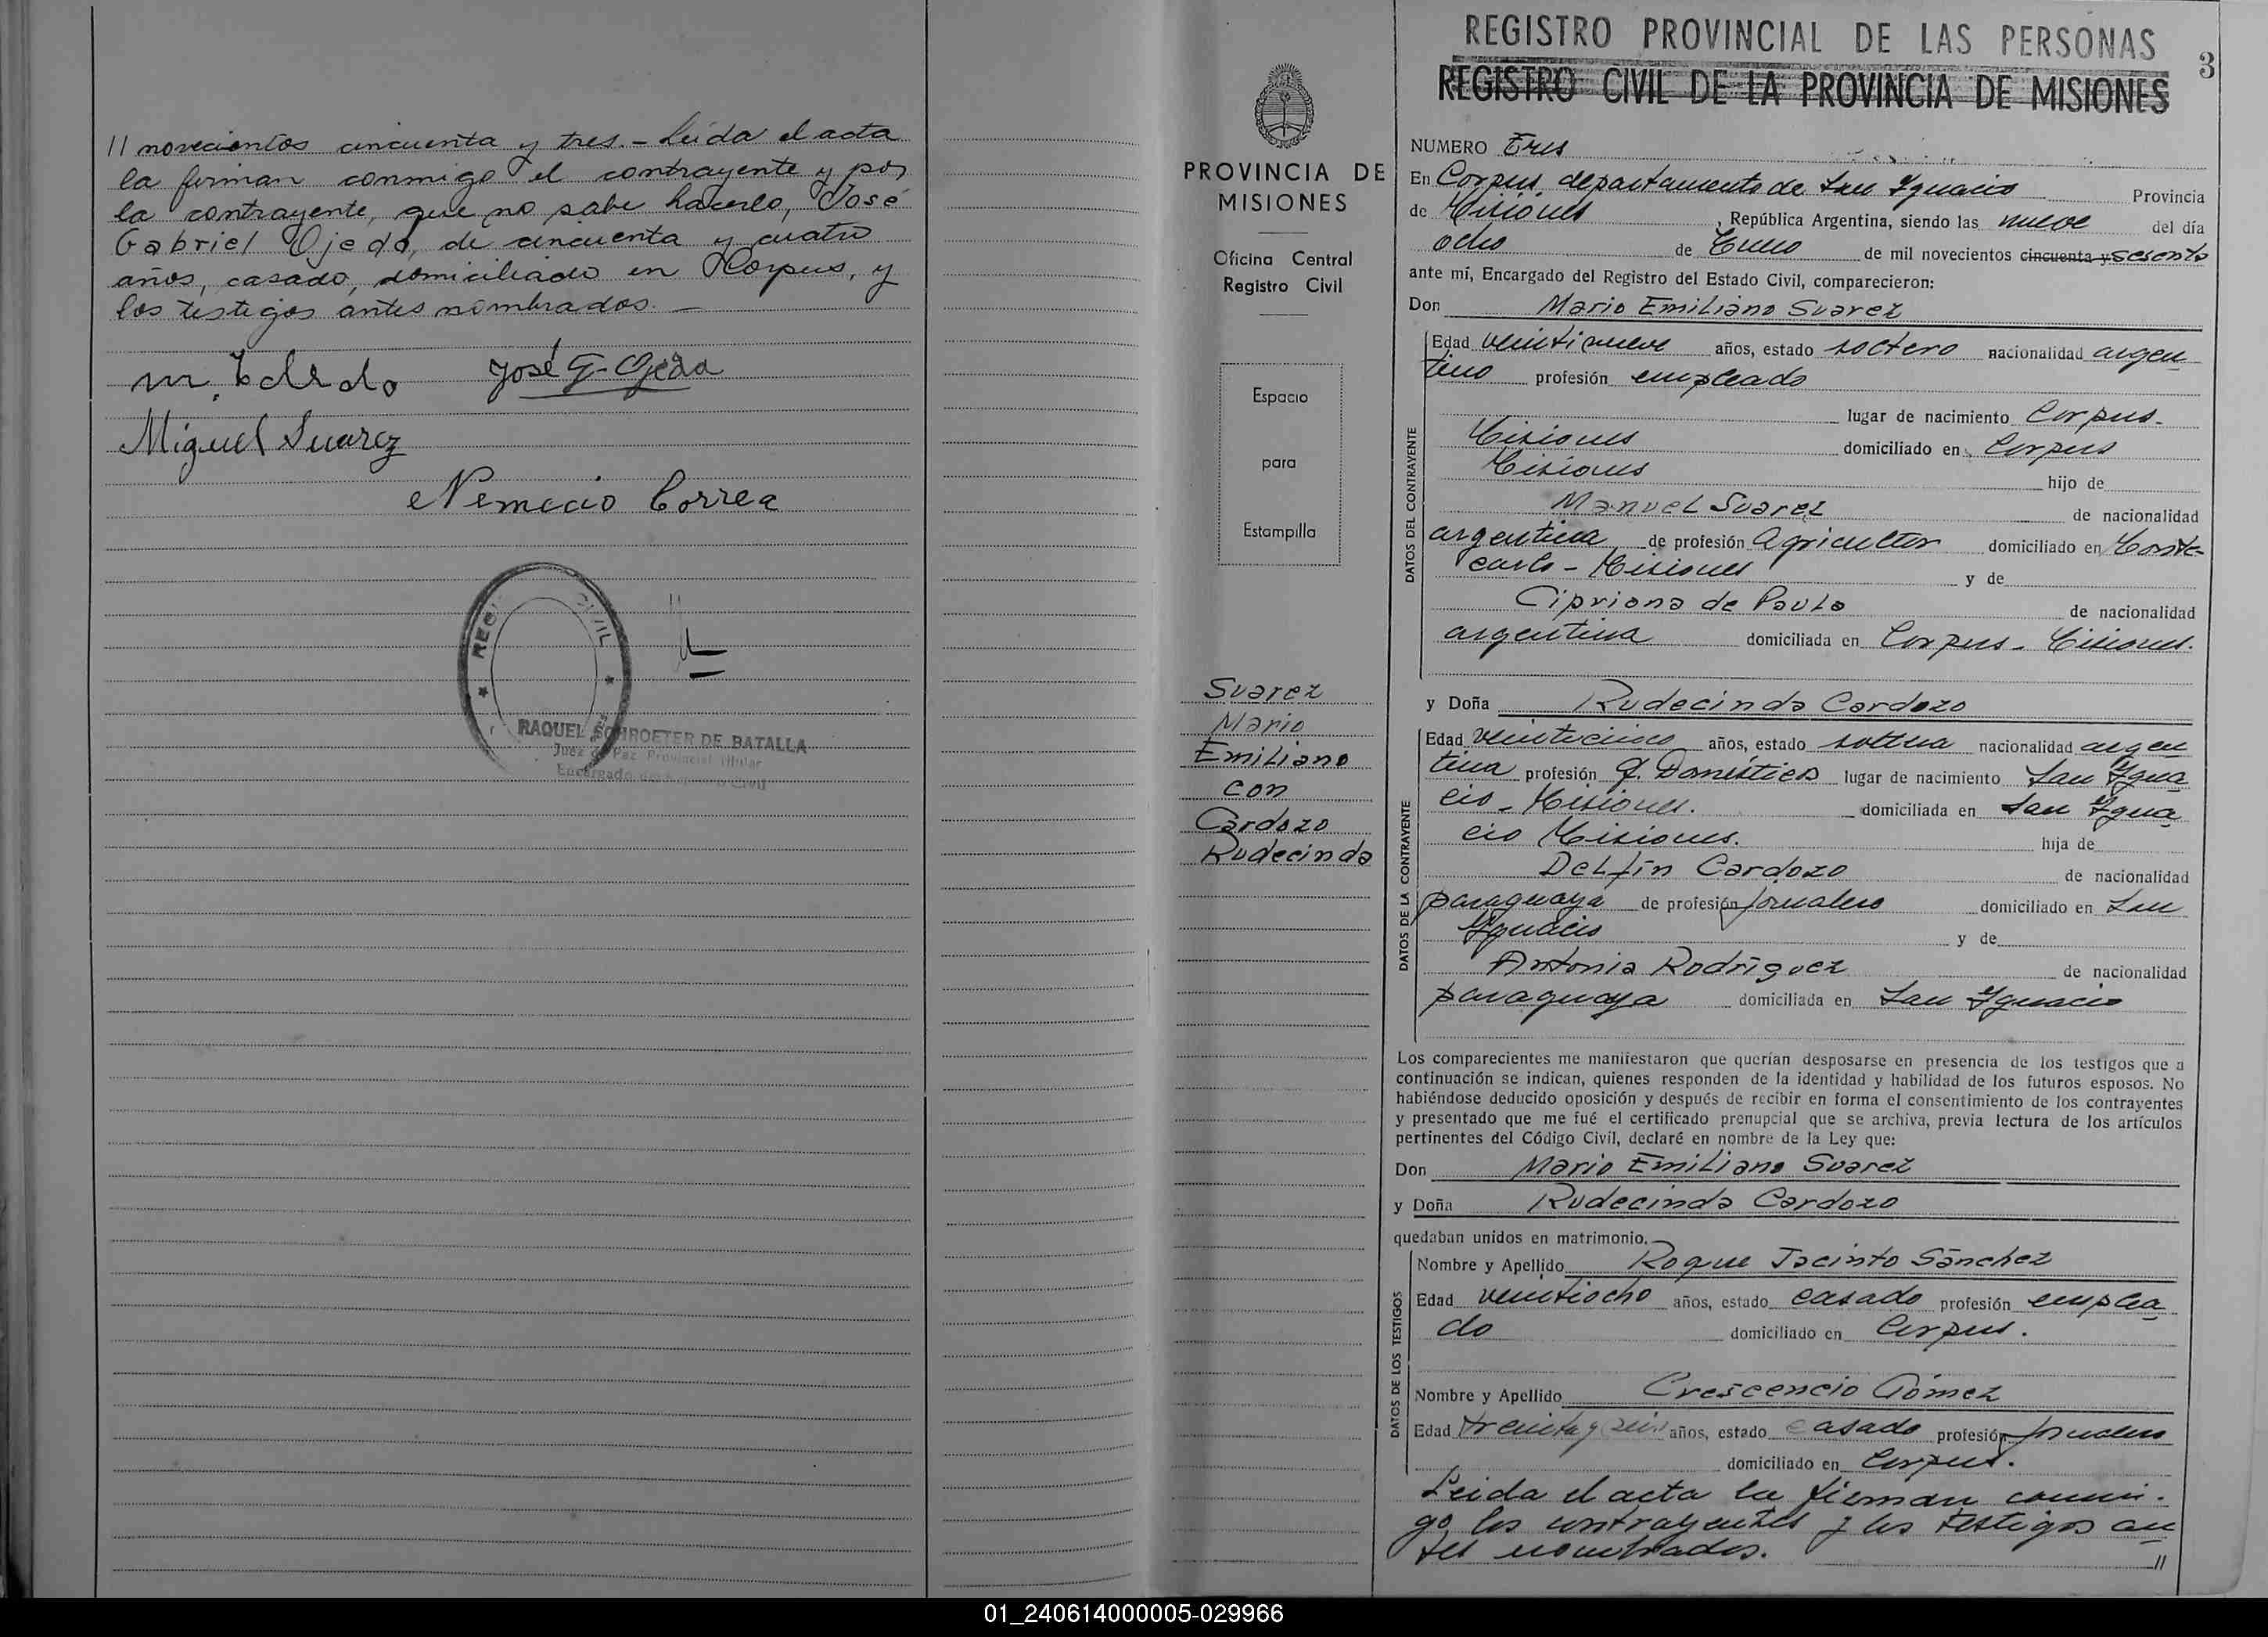 // novecientos cincuenta y tres. - Leída el acta
la firman conmigo el contrayente y por
la contrayente, que no sabe hacerlo, José
Gabriel Ojeda, de cincuenta y cuatro
años, casado, domiciliado en Corpus, y
los testigos antes nombrados. —
José G. Ojeda
Miguel Suarez
Nemecio Correa
REGI CIVIL
RAQUEL SCHROETER DE BATALLA
Juez de Paz Provincial Titular
Encargado del Registro Civil
PROVINCIA DE
MISIONES
Oficina Central
Registro Civil
Espacio
para
Estampilla
Suarez
Mario
Emiliano
con
Cardozo
Rudecinda
REGISTRO PROVINCIAL DE LAS PERSONAS
3
REGISTRO CIVIL DE LA PROVINCIA DE MISIONES
NUMERO Tres
En Corpus, departamento de San Ignacio Provincia
de Misiones, República Argentina, siendo las nueve del día
ocho de Enero de mil novecientos cincuenta y sesenta
ante mí, Encargado del Registro del Estado Civil, comparecieron:
Don Mario Emiliano Suarez
DATOS DEL CONTRAYENTE
Edad veintinueve años, estado soltero nacionalidad argen
tino profesión empleado
lugar de nacimiento Corpus-
Misiones domiciliado en Corpus
Misiones hijo de
Manuel Suarez de nacionalidad
argentina de profesión Agricultor domiciliado en Monte-
carlo - Misiones y de
Cipriana de Paula de nacionalidad
argentina domiciliada en Corpus - Misiones.
y Doña Rudecinda Cardozo
DATOS DE LA CONTRAYENTE
Edad veinticinco años, estado soltera nacionalidad argen
tina profesión Q. Domésticos lugar de nacimiento San Igna
cio - Misiones. domiciliada en San Igna
cio Misiones. hija de
Delfín Cardozo de nacionalidad
paraguaya de profesión jornalero domiciliado en San
Ignacio y de
Antonia Rodríguez de nacionalidad
paraguaya domiciliada en San Ignacio
Los comparecientes me manifestaron que querían desposarse en presencia de los testigos que a
continuación se indican, quienes responden de la identidad y habilidad de los futuros esposos. No
habiéndose deducido oposición y después de recibir en forma el consentimiento de los contrayentes
y presentado que me fué el certificado prenupcial que se archiva, previa lectura de los artículos
pertinentes del Código Civil, declaré en nombre de la Ley que:
Don Mario Emiliano Suarez
y Doña Rudecinda Cardozo
quedaban unidos en matrimonio.
DATOS DE LOS TESTIGOS
Nombre y Apellido Roque Jacinto Sánchez
Edad veintiocho años, estado casado profesión emplea
do domiciliado en Corpus.
Nombre y Apellido Crescencio Gómez
Edad treinta y seis años, estado casado profesión jornalero
domiciliado en Corpus.
Leida el acta la firman conmi-
go, los contrayentes y los testigos an
tes nombrados. //
01_240614000005-029966